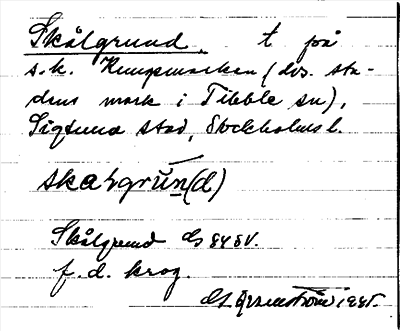 Skålgrund. t på
s.k. Kungsmarken (dvs. sta-
dens mark i Tibble sn),
Sigtuna stad, Stockholms l.
skaLgrun(d)
Skålgrund GS 84 SV.
f. d. krog.